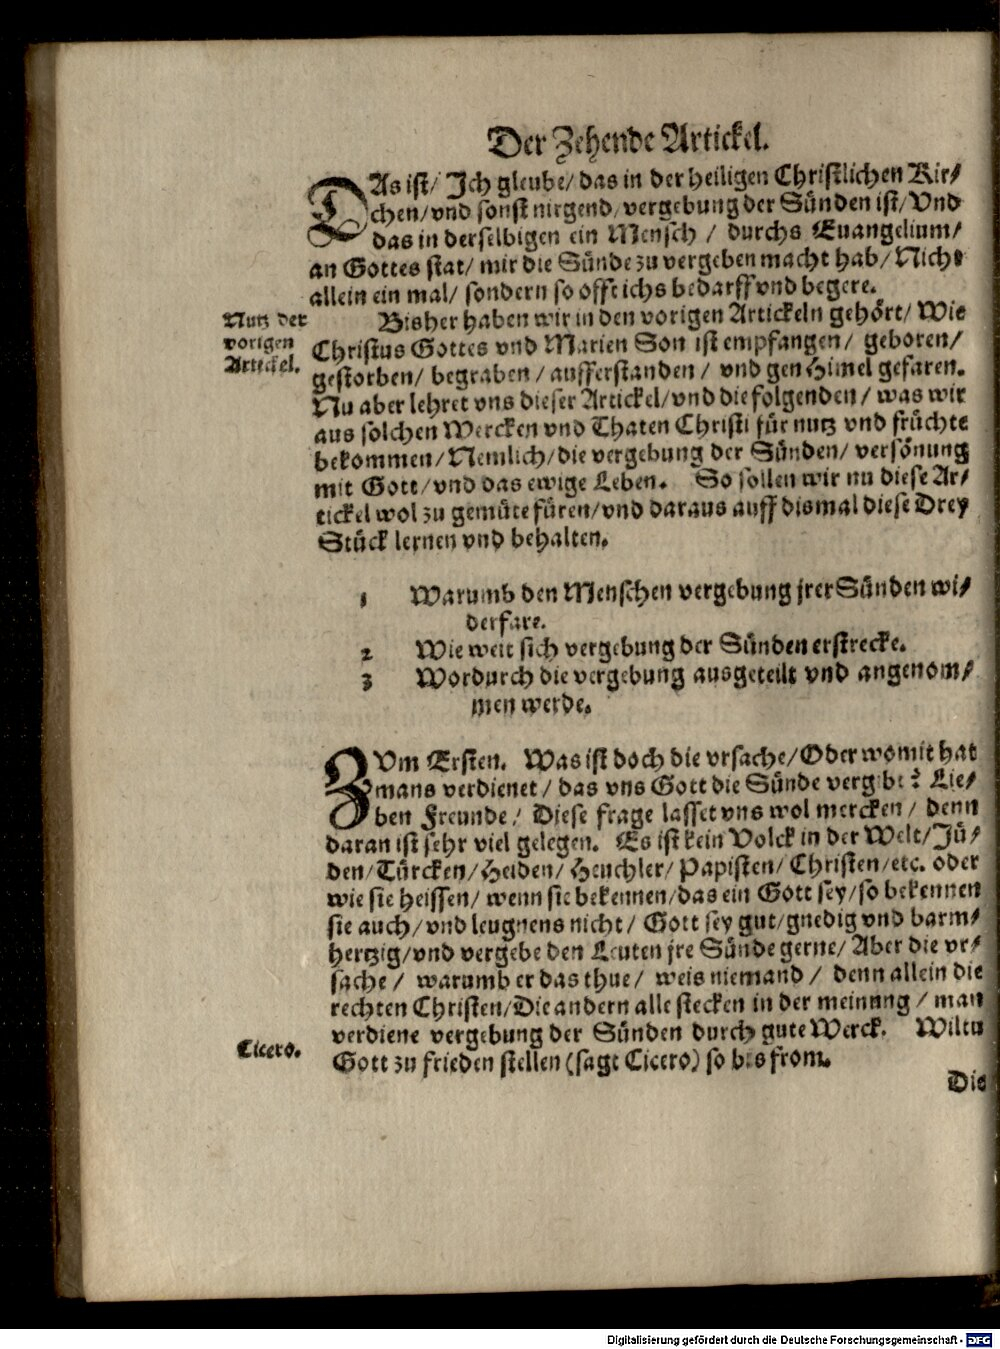 Der Zehende Artickel.
DAs ist/ Ich gleube/ das in der heiligen Christlichen Kir/
chen/ vnd sonst nirgend/ vergebung der Sünden ist/ Vnd
das in derselbigen ein Mensch / durchs Euangelium/
an Gottes stat/ mir die Sünde zu vergeben macht hab/ Nicht
allein ein mal/ sondern so offt ichs bedarff vnd begere.
Nutz der
vorigen
Artickel.
Bisher haben wir in den vorigen Artickeln gehört/ Wie
Christus Gottes vnd Marien Son ist empfangen/ geboren/
gestorben/ begraben / aufferstanden / vnd gen Himel gefaren.
Nu aber lehret vns dieser Artickel/ vnd die folgenden / was wir
aus solchen Wercken vnd Thaten Christi für nutz vnd früchte
bekommen/ Nemlich/ die vergebung der Sünden/ versönung
mit Gott/ vnd das ewige Leben. So sollen wir nu diese Ar/
tickel wol zu gemüte füren/ vnd daraus auff dismal diese Drey
Stück lernen vnd behalten.
1 Warumb den Menschen vergebung jrer Sünden wi/
derfare.
2 Wie weit sich vergebung der Sünden erstrecke.
3 Wordurch die vergebung ausgeteilt vnd angenom/
men werde.
ZVm Ersten. Was ist doch die vrsache/ Oder womit hat
mans verdienet/ das vns Gott die Sünde vergibt? Lie/
ben Freunde/ Diese frage lasset vns wol mercken / denn
daran ist sehr viel gelegen. Es ist kein Volck in der Welt/ Jü/
den/ Türcken/ Heiden/ Heuchler/ Papisten/ Christen/ etc. oder
wie sie heissen/ wenn sie bekennen/ das ein Gott sey/ so bekennen
sie auch/ vnd leugnens nicht/ Gott sey gut/ gnedig vnd barm/
hertzig/ vnd vergebe den Leuten jre Sünde gerne/ Aber die vr/
sache / warumb er das thue/ weis niemand / denn allein die
rechten Christen/ Die andern alle stecken in der meinung / man
verdiene vergebung der Sünden durch gute Werck. Wiltu
Cicero.
Gott zu frieden stellen (sagt Cicero) so bis from.
Die
Digitalisierung gefördert durch die Deutsche Forschungsgemeinschaft - DFG